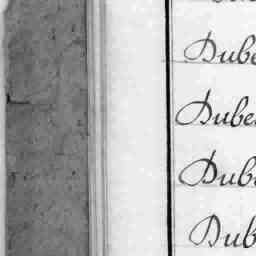 Dube
Dube
Dub
Dub